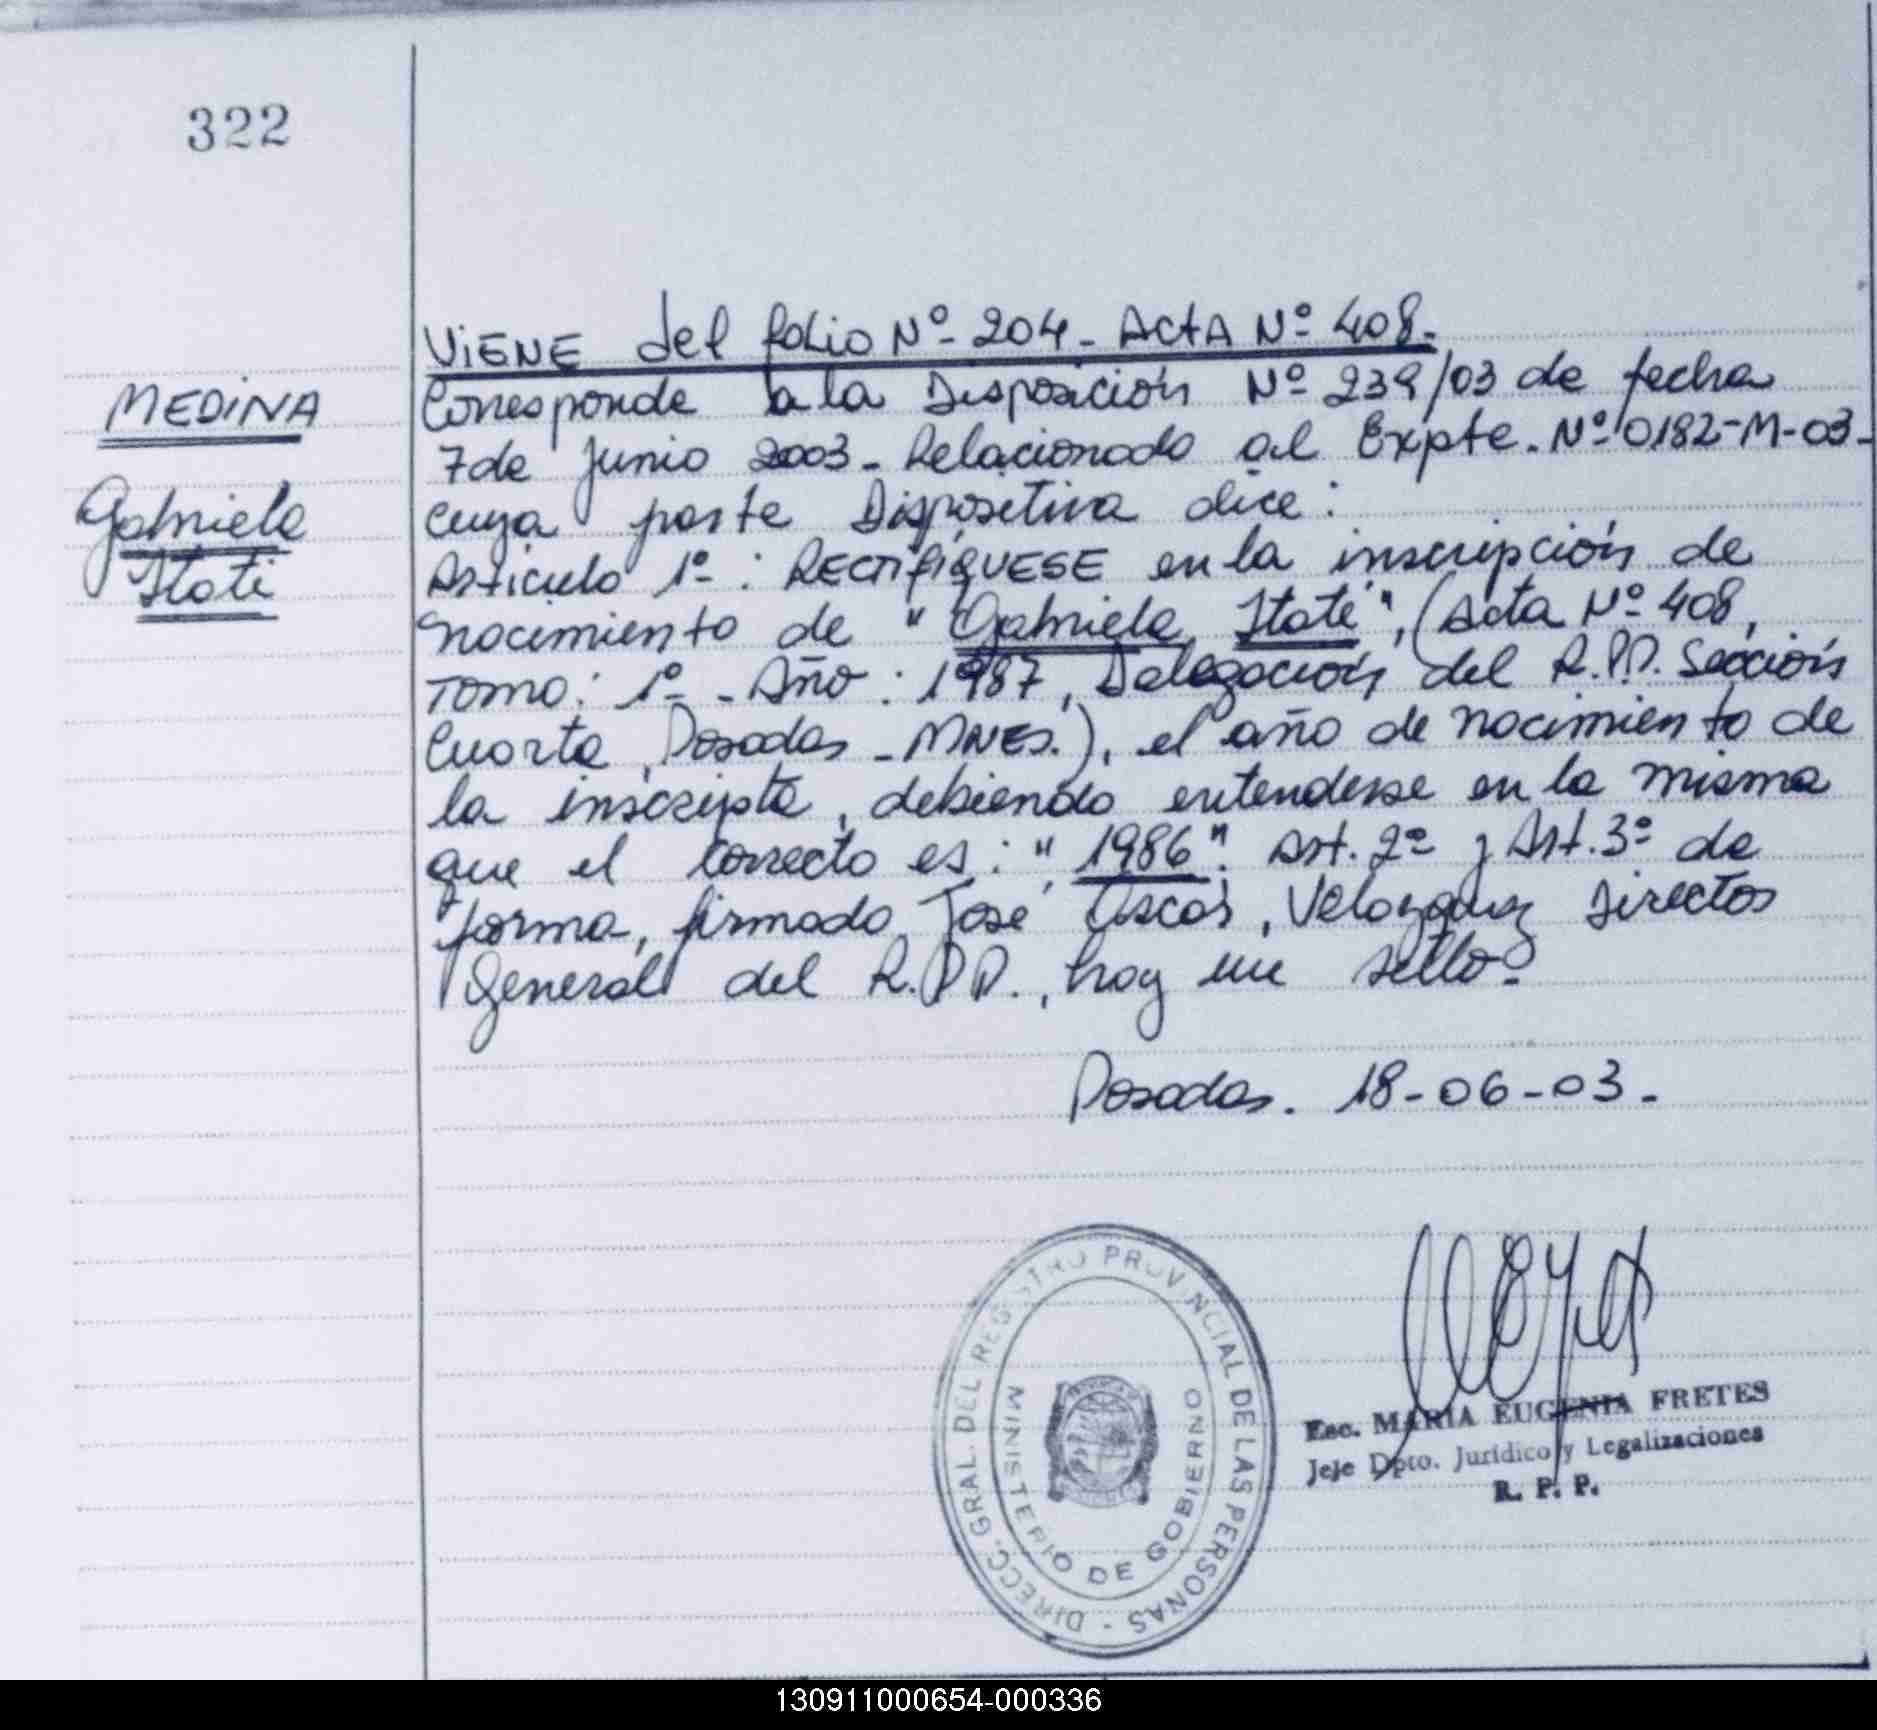 322
MEDINA
Gabriela
Itatí
VIENE del folio Nº 204. ActA Nº 408.
Corresponde a la Disposición Nº 239/03 de fecha
7 de Junio 2003. Relacionado al Expte. Nº 0182-M-03-
cuya parte Dispositiva dice:
Artículo 1º: RECTIFIQUESE en la inscripción de
nacimiento de "Gabriela Itatí", (Acta Nº 408,
Tomo: 1º - Año: 1987, Delegación del R.P.P. Sección
Cuarta, Posadas - MNES.), el año de nacimiento de
la inscripta, debiendo entenderse en la misma
que el correcto es: "1986". Art. 2º y Art. 3º de
forma, firmado José Oscar, Velazquez Director
General del R.P.P., hay un sello.
Posadas. 18-06-03.
DIRECC. GRAL. DEL REGISTRO PROVINCIAL DE LAS PERSONAS -
MINISTERIO DE GOBIERNO
Esc. MARIA EUGENIA FRETES
Jefe Dpto. Jurídico y Legalizaciones
R. P. P.
130911000654-000336